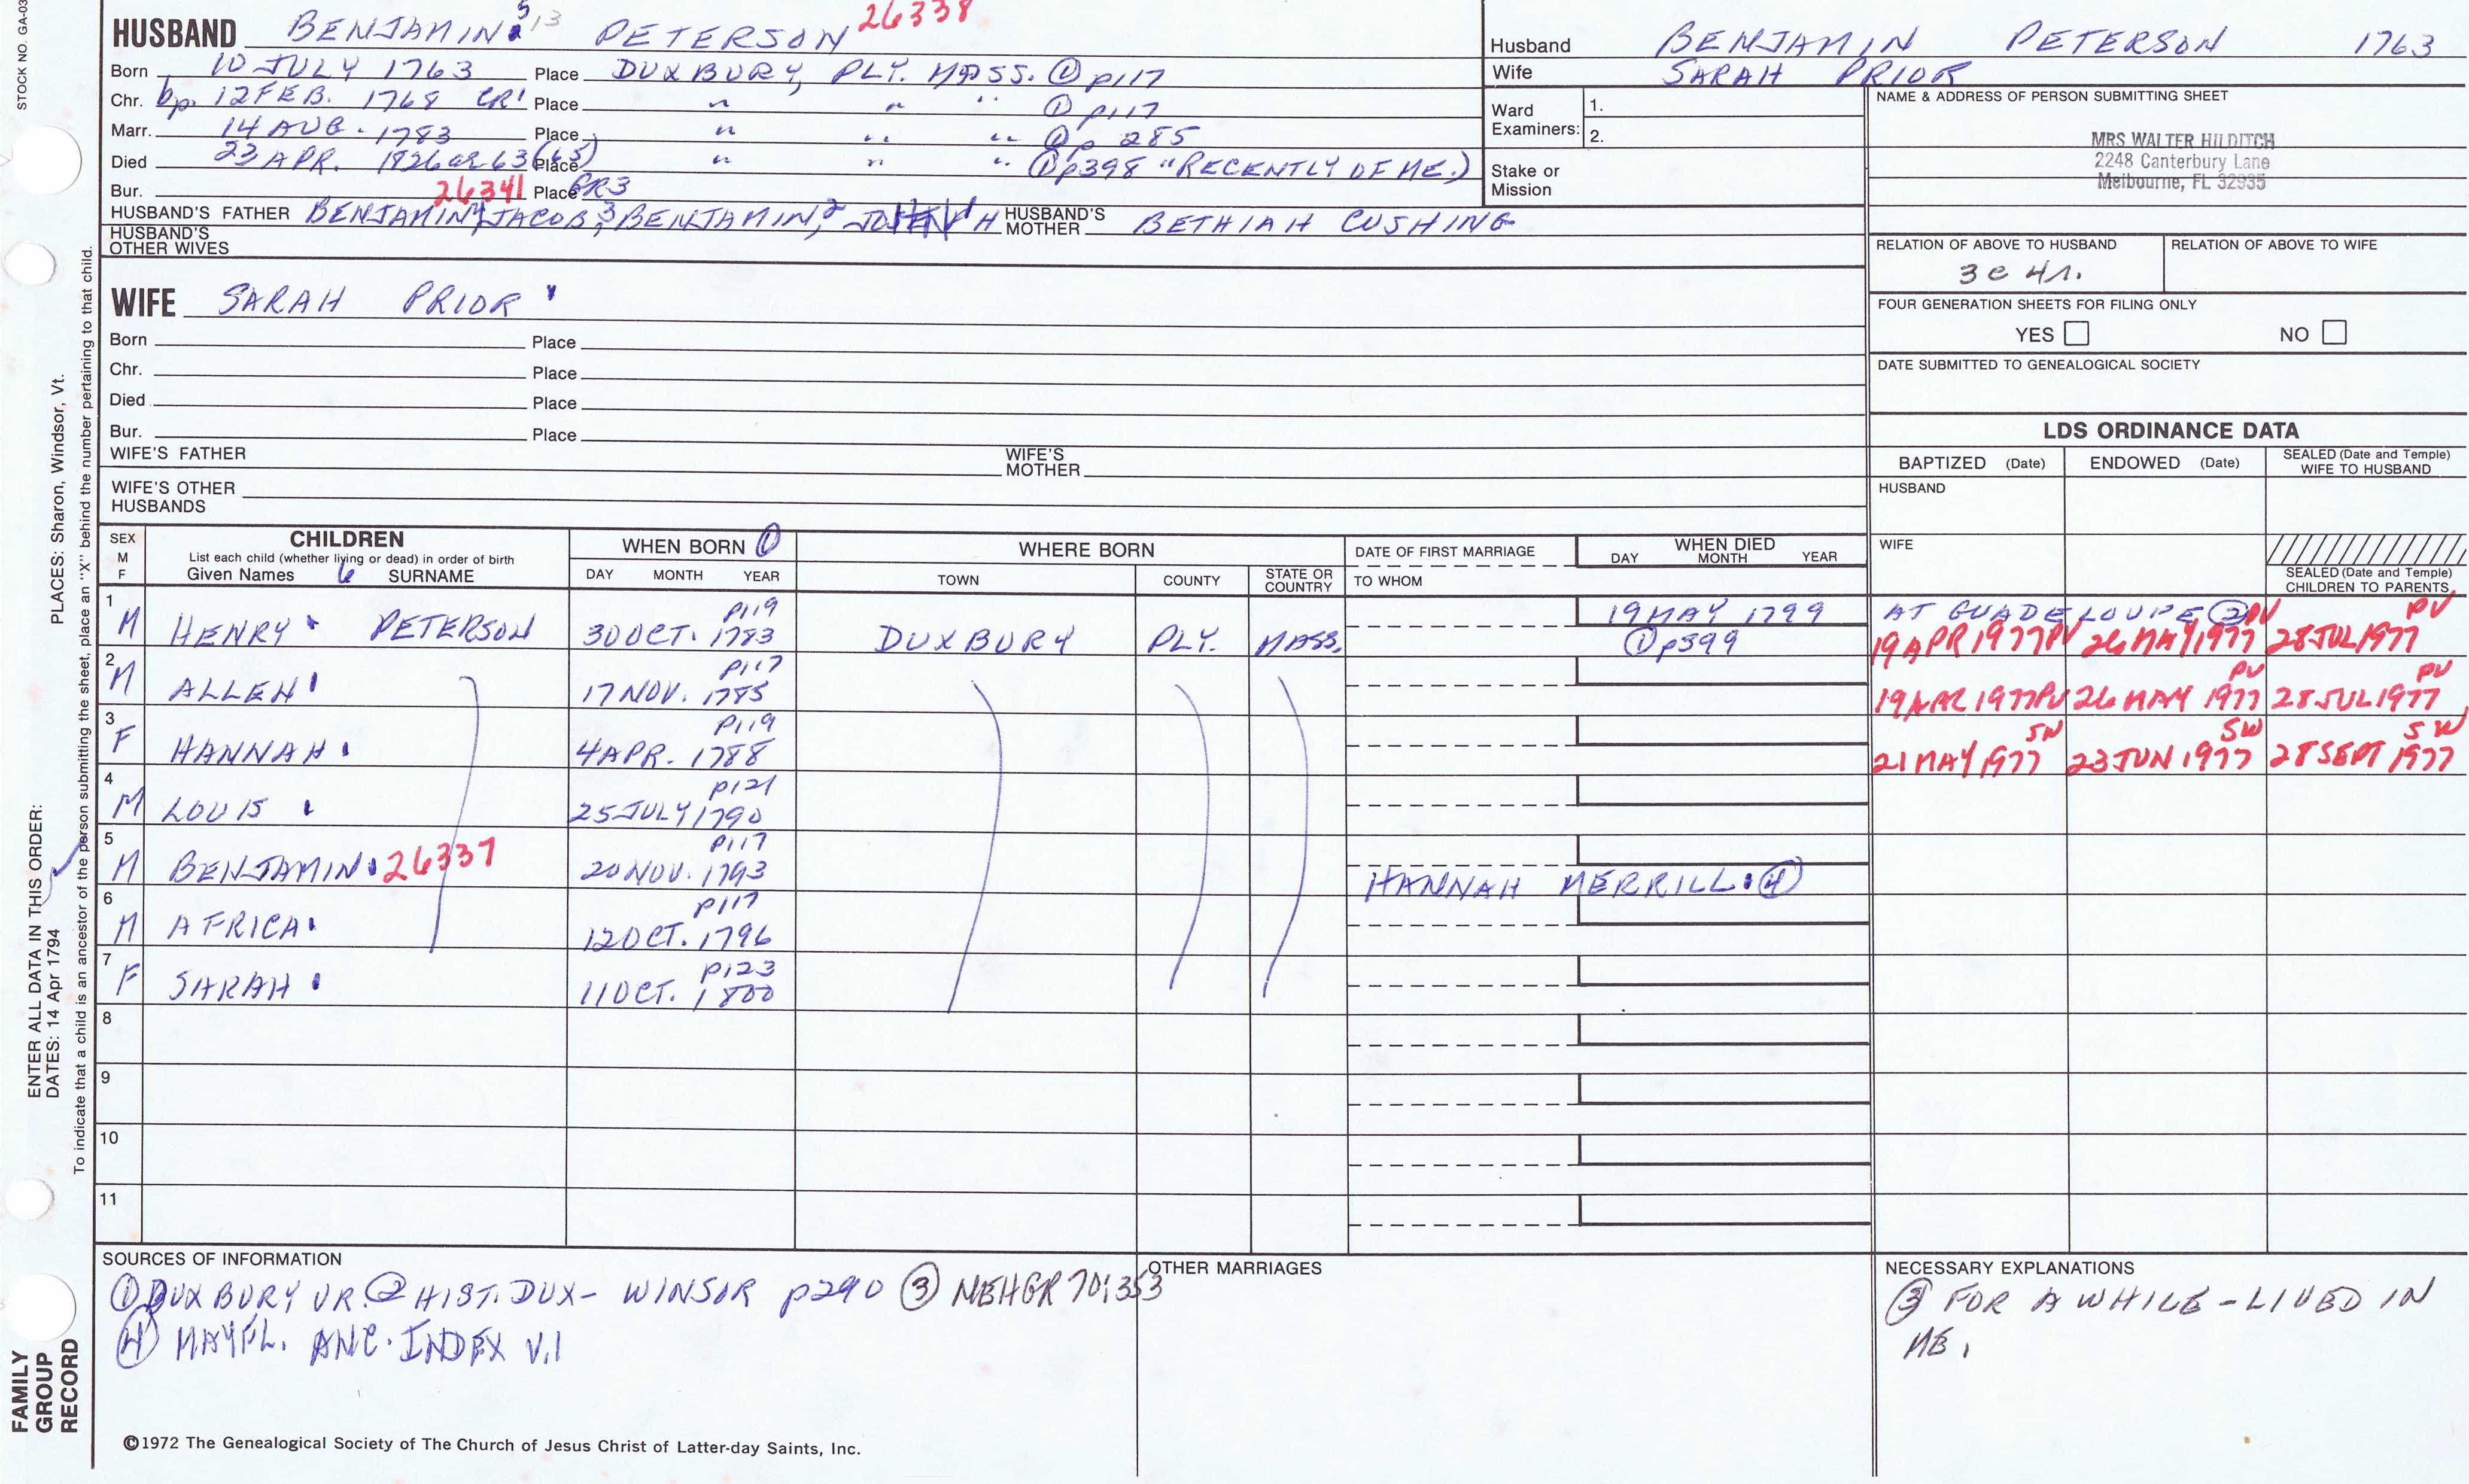 STOCK NO. GA-03
HUSBAND BENJAMIN 5 13 PETERSON 26338
Born 10 JULY 1763 Place DUXBURY, PLY. MASS. ① p117
Chr. bp. 12 FEB. 1768 CR1 Place " " " ① p117
Marr. 14 AUG. 1783 Place " " " ① p 285
Died 23 APR. 1826 ae 63 (65) Place " " " ① p398 "RECENTLY OF ME.)
Bur. 26341 Place PR3
HUSBAND'S FATHER BENJAMIN4, JACOB,3 BENJAMIN,2 HUSBAND'S MOTHER BETHIAH CUSHING
HUSBAND'S OTHER WIVES
Husband BENJAMIN PETERSON 1763
Wife SARAH PRIOR
Ward Examiners: 1.
2.
Stake or Mission
NAME & ADDRESS OF PERSON SUBMITTING SHEET
MRS WALTER HILDITCH
2248 Canterbury Lane
Melbourne, FL 32935
RELATION OF ABOVE TO HUSBAND RELATION OF ABOVE TO WIFE
3 c 4 r.
FOUR GENERATION SHEETS FOR FILING ONLY
YES NO
DATE SUBMITTED TO GENEALOGICAL SOCIETY
WIFE SARAH PRIOR
Born Place
Chr. Place
Died Place
Bur. Place
WIFE'S FATHER WIFE'S MOTHER
WIFE'S OTHER HUSBANDS
LDS ORDINANCE DATA
BAPTIZED (Date) ENDOWED (Date) SEALED (Date and Temple) WIFE TO HUSBAND
HUSBAND
WIFE
SEALED (Date and Temple) CHILDREN TO PARENTS
SEX M F CHILDREN
List each child (whether living or dead) in order of birth
Given Names 6 SURNAME
WHEN BORN ① DAY MONTH YEAR
WHERE BORN TOWN COUNTY STATE OR COUNTRY
DATE OF FIRST MARRIAGE TO WHOM
WHEN DIED DAY MONTH YEAR
1 p119 19 MAY 1799 AT GUADELOUPE ② PV PV
M HENRY PETERSON 30 OCT. 1783 DUXBURY PLY. MASS. ① p399 19 APR 1977 PV 26 MAY 1977 28 JUL 1977
2 p117 PV PV
M ALLEN 17 NOV. 1785 19 APR 1977 PV 26 MAY 1977 28 JUL 1977
3 p119 SW SW SW
F HANNAH 4 APR. 1788 21 MAY 1977 23 JUN 1977 28 SEPT 1977
4 p121
M LOUIS 25 JULY 1790
5 p117
M BENJAMIN 26337 20 NOV. 1793 HANNAH MERRILL ④
6 p117
M AFRICA 12 OCT. 1796
7 p123
F SARAH 11 OCT. 1800
8
9
10
11
SOURCES OF INFORMATION
① DUXBURY VR. ② HIST. DUX- WINSOR p290 ③ NEHGR 70:353
④ MAYFL. ANC. INDEX V.1
OTHER MARRIAGES
NECESSARY EXPLANATIONS
③ FOR A WHILE - LIVED IN
ME.
©1972 The Genealogical Society of The Church of Jesus Christ of Latter-day Saints, Inc.
FAMILY GROUP RECORD
ENTER ALL DATA IN THIS ORDER:
DATES: 14 Apr 1794 PLACES: Sharon, Windsor, Vt.
To indicate that a child is an ancestor of the person submitting the sheet, place an "X" behind the number pertaining to that child.